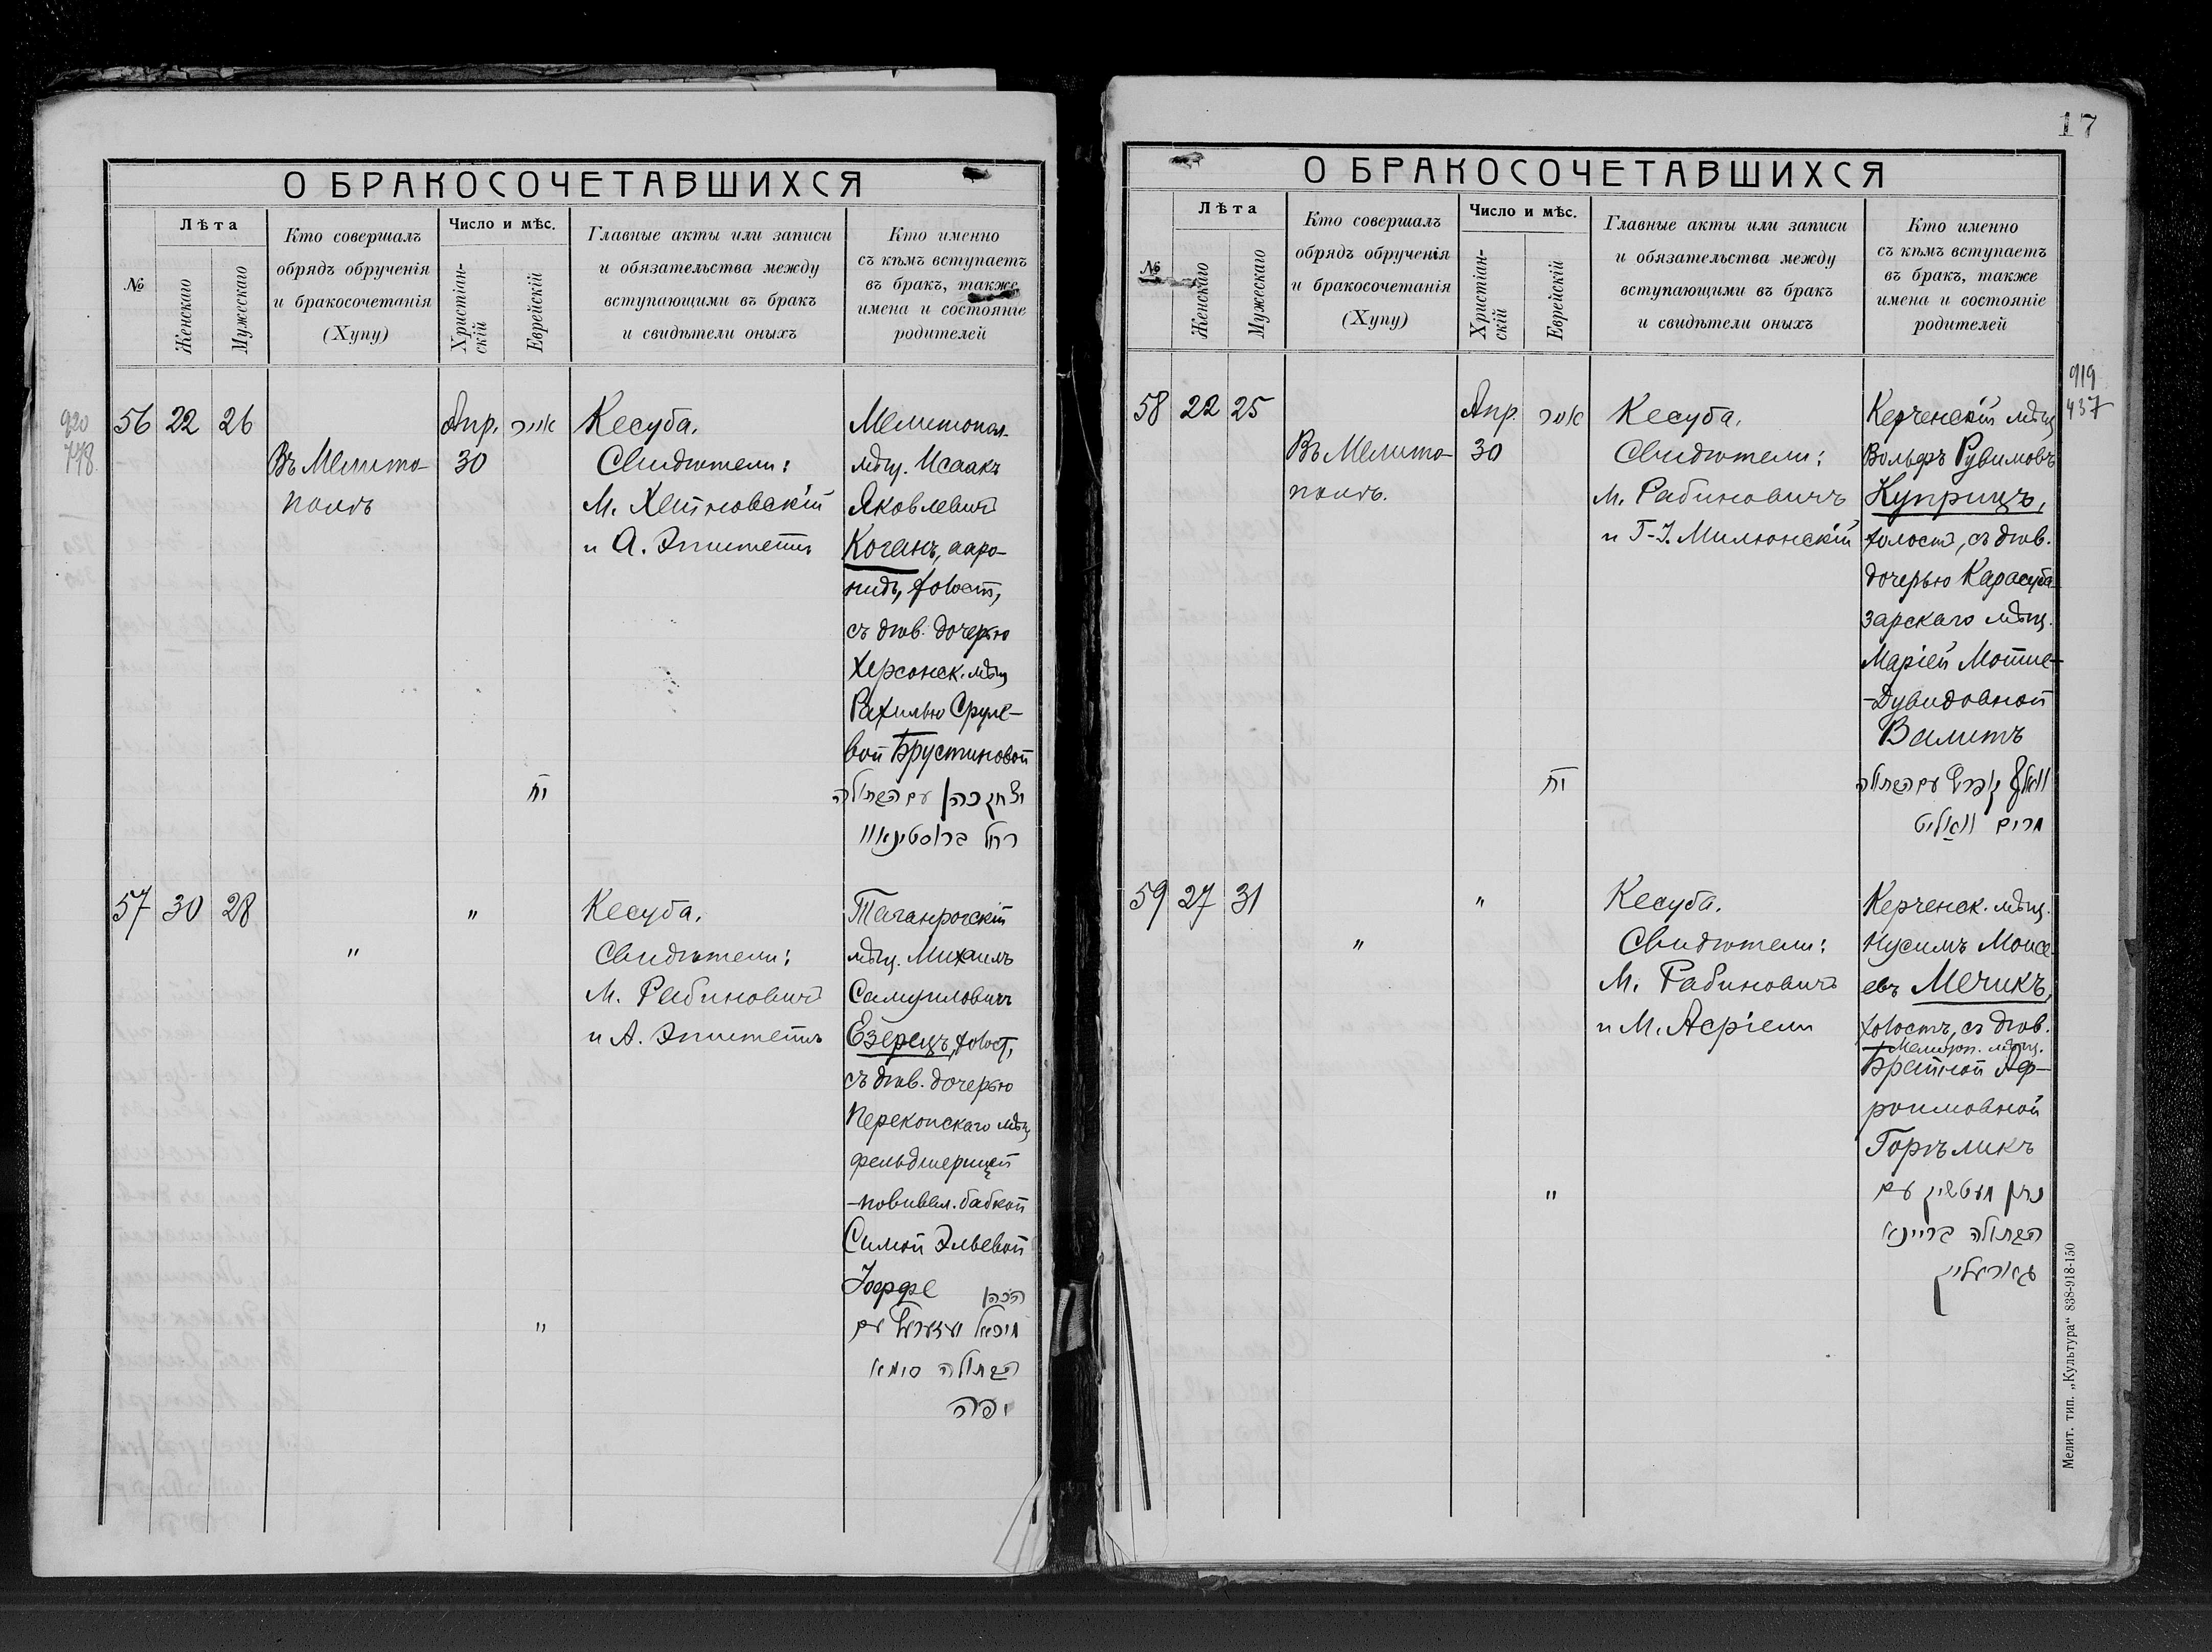 О БРАКОСОЧЕТАВШИХСЯ
№
Лѣта
Женскаго
Мужескаго
Кто совершалъ
обрядъ обрученія
и бракосочетанія
(Хупу)
Число и мѣс.
Христіан-
скій
Еврейскій
Главные акты или записи
и обязательства между
вступающими въ бракъ
и свидѣтели оныхъ
Кто именно
съ кѣмъ вступаетъ
въ бракъ, также
имена и состояніе
родителей
920
778
56 22 26
Въ Мелито-
полѣ
Апр.
30
אייר
יח
Кесуба.
Свидѣтели:
М. Хейновскій
и А. Эпштейнъ
Мелитопол.
мѣщ. Исаакъ
Яковлевичъ
Коганъ, ааро-
нидъ, холост,
съ дѣв. дочерью
Херсонск. мѣщ
Рахилью Сруле-
вой Брустиновой
יצחק כהן עם הבתולה
רחל ברוסטינאוו
57 30 28
"
"
"
Кесуба.
Свидѣтели:
М. Рабиновичъ
и А. Эпштейнъ
Таганрогскій
мѣщ. Михаилъ
Самуиловичъ
Езерецъ, холост,
съ дѣв. дочерью
Перекопскаго мѣщ
фельдшерицей
-повивал. бабкой
Симой Эльевой
Іоффе הכהן
מיכאל יעזערעץ עם
הבתולה סימא
יפה
17
О БРАКОСОЧЕТАВШИХСЯ
№
Лѣта
Женскаго
Мужескаго
Кто совершалъ
обрядъ обрученія
и бракосочетанія
(Хупу)
Число и мѣс.
Христіан-
скій
Еврейскій
Главные акты или записи
и обязательства между
вступающими въ бракъ
и свидѣтели оныхъ
Кто именно
съ кѣмъ вступаетъ
въ бракъ, также
имена и состояніе
родителей
919
437
58 22 25
Въ Мелито-
полѣ.
Апр.
30
אייר
יח
Кесуба.
Свидѣтели:
М. Рабиновичъ
и Г-І. Милюнскій
Керченскій мѣщ
Вольфъ Рувимовъ
Куприцъ,
холостъ, съ дѣв.
дочерью Карасуба
зарскаго мѣщ.
Маріей Мотше-
-Дувидовной
Валитъ
וואלף קופריץ עם הבתולה
מרים וואליט
59 27 31
"
"
"
Кесуба.
Свидѣтели:
М. Рабиновичъ
и М. Асріели
Керченск. мѣщ.
Нусимъ Моисе
евъ Мечикъ,
холостъ, съ дѣв.
Мелитоп. мѣщ.
Брейной Аф-
роимовной
Горѣликъ
נתן מעטשיק עם
הבתולה בריינא
גאורעליק
Мелит. тип. „Культура" 838-918-150